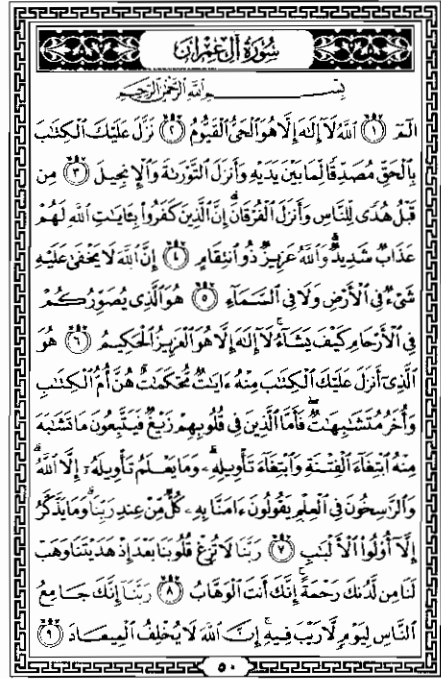 سُورَةُ آلِ عِمْرَان
بِسْمِ اللَّهِ الرَّحْمَٰنِ الرَّحِيمِ
الٓمٓ ١ ٱللَّهُ لَآ إِلَٰهَ إِلَّا هُوَ ٱلْحَىُّ ٱلْقَيُّومُ ٢ نَزَّلَ عَلَيْكَ ٱلْكِتَٰبَ
بِٱلْحَقِّ مُصَدِّقًا لِّمَا بَيْنَ يَدَيْهِ وَأَنزَلَ ٱلتَّوْرَىٰةَ وَٱلْإِنجِيلَ ٣ مِن
قَبْلُ هُدًى لِّلنَّاسِ وَأَنزَلَ ٱلْفُرْقَانَ ۗ إِنَّ ٱلَّذِينَ كَفَرُوا۟ بِـَٔايَٰتِ ٱللَّهِ لَهُمْ
عَذَابٌ شَدِيدٌ ۗ وَٱللَّهُ عَزِيزٌ ذُو ٱنتِقَامٍ ٤ إِنَّ ٱللَّهَ لَا يَخْفَىٰ عَلَيْهِ
شَىْءٌ فِى ٱلْأَرْضِ وَلَا فِى ٱلسَّمَآءِ ٥ هُوَ ٱلَّذِى يُصَوِّرُكُمْ
فِى ٱلْأَرْحَامِ كَيْفَ يَشَآءُ ۚ لَآ إِلَٰهَ إِلَّا هُوَ ٱلْعَزِيزُ ٱلْحَكِيمُ ٦ هُوَ
ٱلَّذِىٓ أَنزَلَ عَلَيْكَ ٱلْكِتَٰبَ مِنْهُ ءَايَٰتٌ مُّحْكَمَٰتٌ هُنَّ أُمُّ ٱلْكِتَٰبِ
وَأُخَرُ مُتَشَٰبِهَٰتٌ ۖ فَأَمَّا ٱلَّذِينَ فِى قُلُوبِهِمْ زَيْغٌ فَيَتَّبِعُونَ مَا تَشَٰبَهَ
مِنْهُ ٱبْتِغَآءَ ٱلْفِتْنَةِ وَٱبْتِغَآءَ تَأْوِيلِهِۦ ۗ وَمَا يَعْلَمُ تَأْوِيلَهُۥٓ إِلَّا ٱللَّهُ ۗ
وَٱلرَّٰسِخُونَ فِى ٱلْعِلْمِ يَقُولُونَ ءَامَنَّا بِهِۦ كُلٌّ مِّنْ عِندِ رَبِّنَا ۗ وَمَا يَذَّكَّرُ
إِلَّآ أُو۟لُوا۟ ٱلْأَلْبَٰبِ ٧ رَبَّنَا لَا تُزِغْ قُلُوبَنَا بَعْدَ إِذْ هَدَيْتَنَا وَهَبْ
لَنَا مِن لَّدُنكَ رَحْمَةً ۚ إِنَّكَ أَنتَ ٱلْوَهَّابُ ٨ رَبَّنَآ إِنَّكَ جَامِعُ
ٱلنَّاسِ لِيَوْمٍ لَّا رَيْبَ فِيهِ ۚ إِنَّ ٱللَّهَ لَا يُخْلِفُ ٱلْمِيعَادَ ٩
٥٠